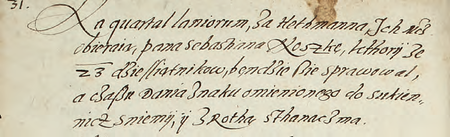 31.
Na quartal laniorum, za Hethmanna, Ich
obieraia, pana sebastiana Koszke, kthorÿ ze
23 dziessiątnikow, bendzie sie sprawował,
a czassu dawania znaku omienionego do sukien-
nicz sniemj, ÿ z Rothą sthanacz ma.